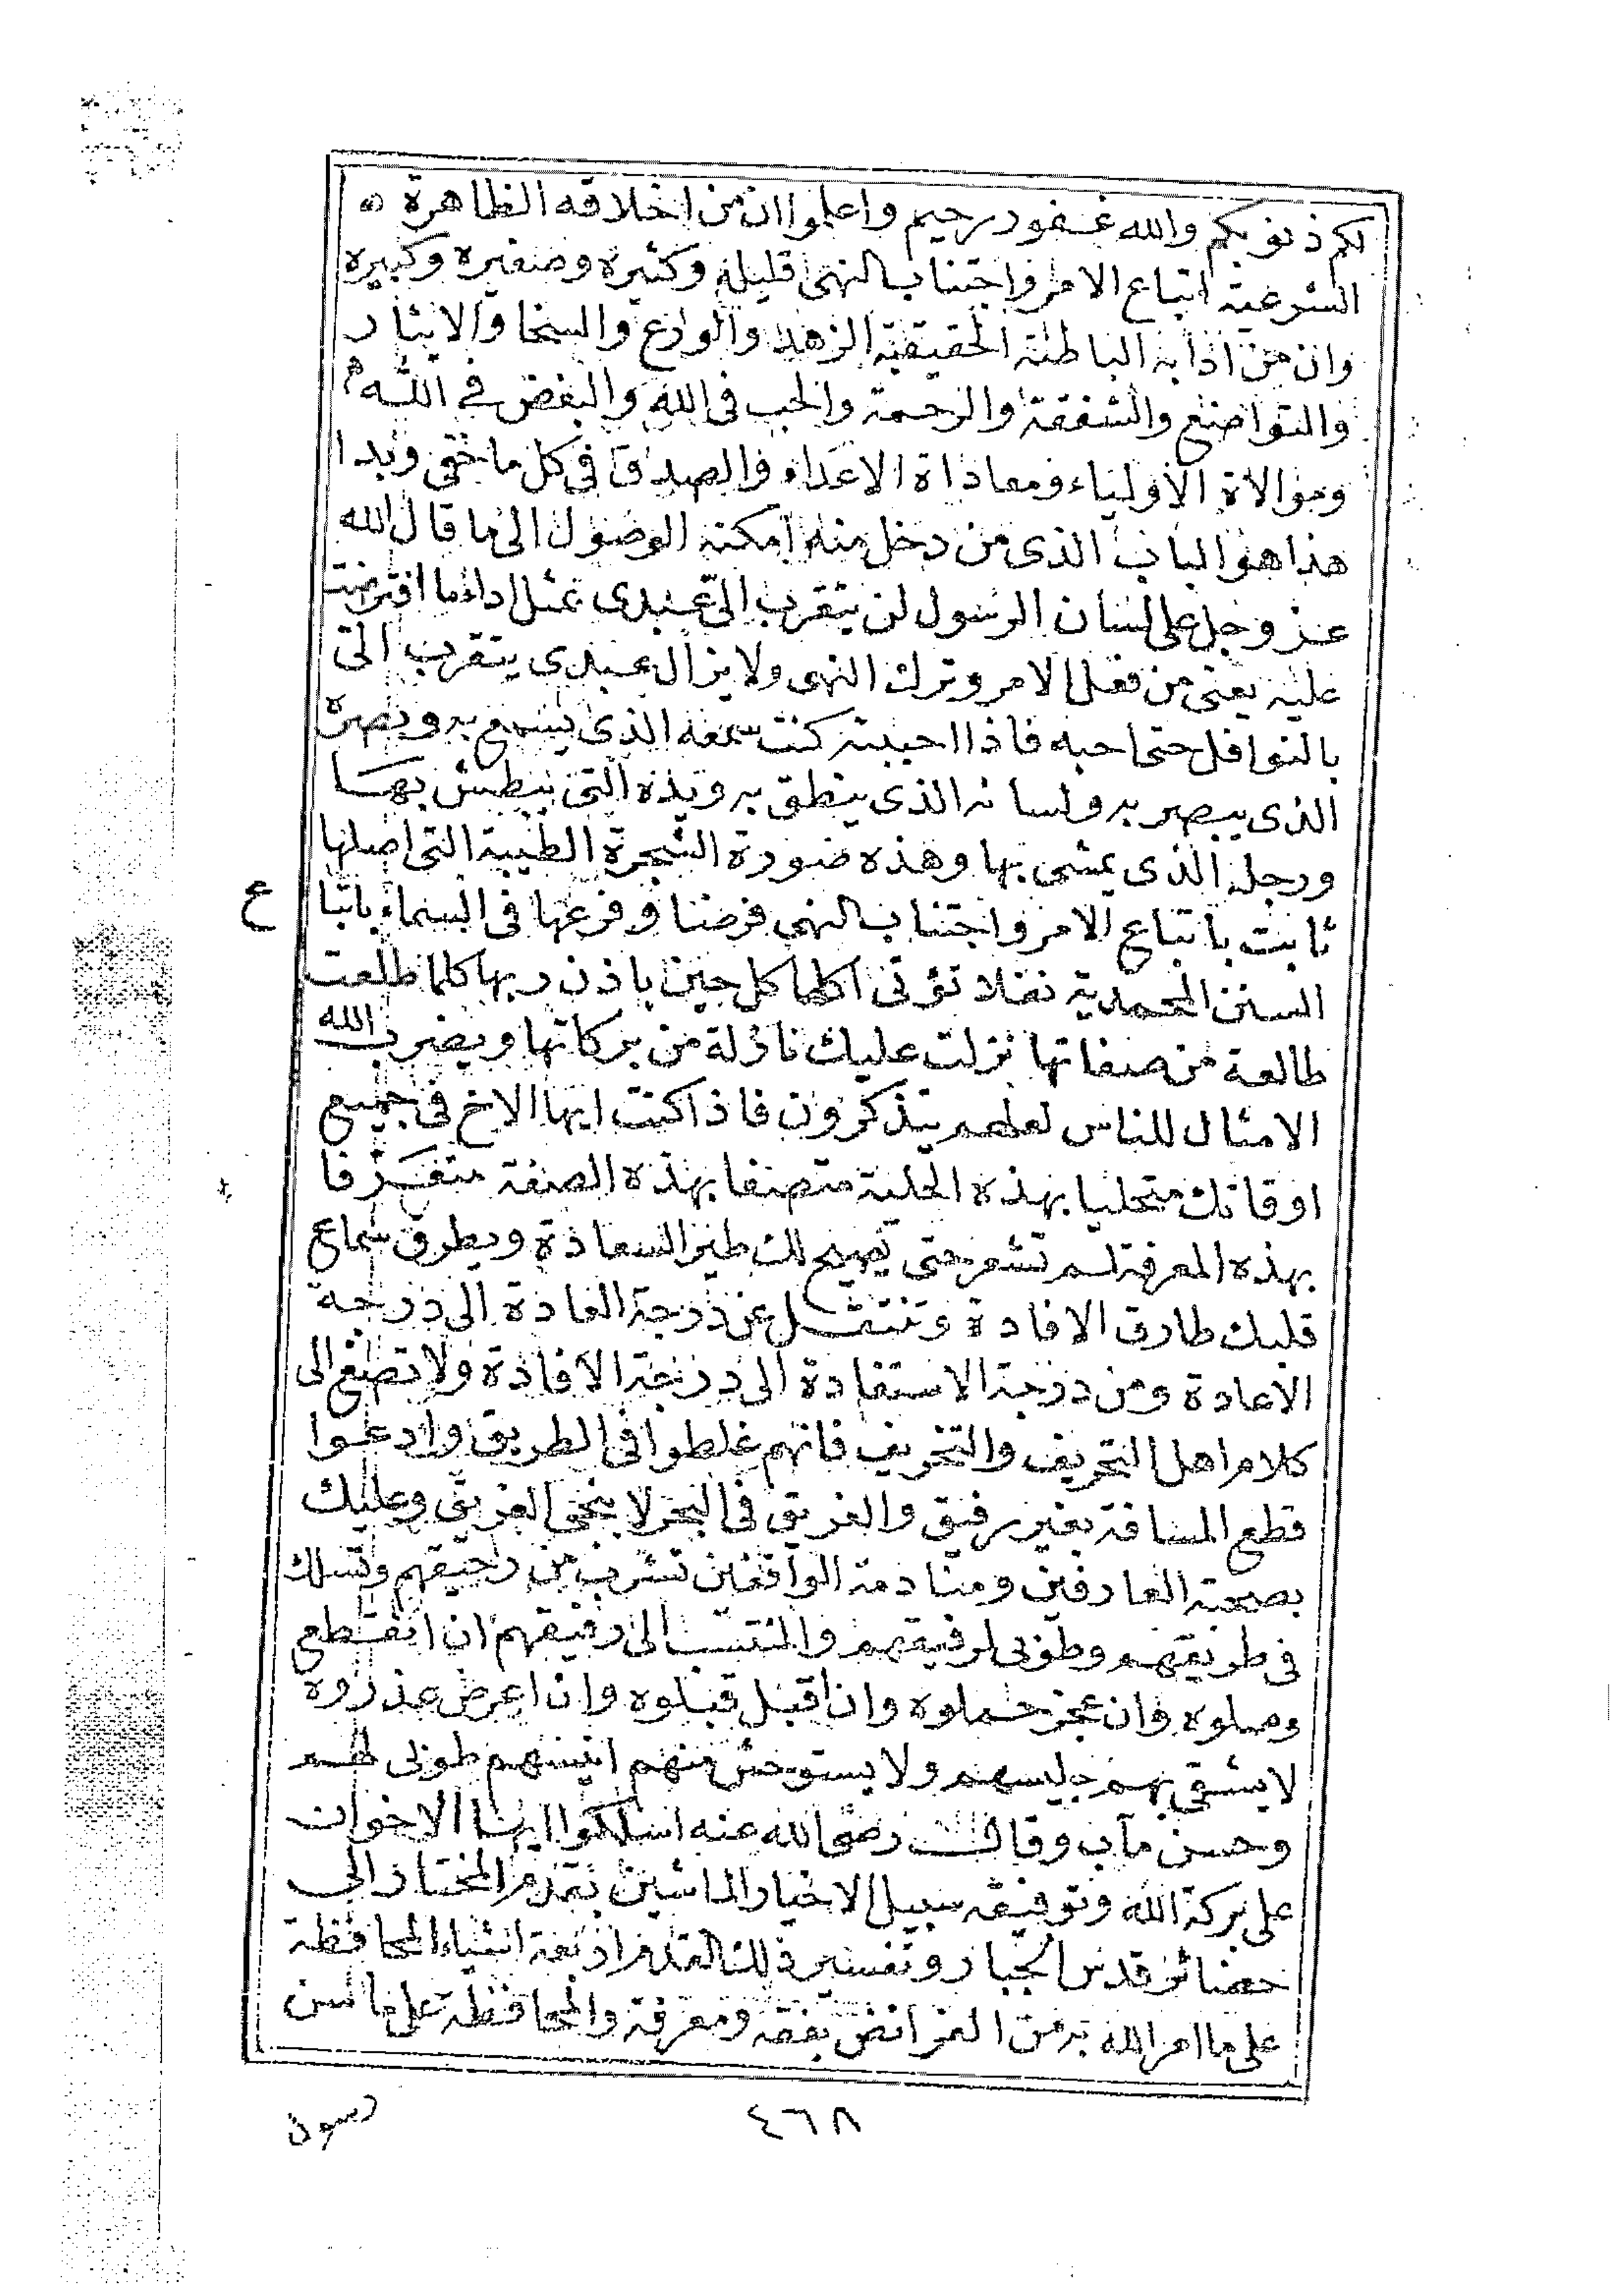 لكم ذنوبكم والله غفور رحيم واعلموا ان من اخلاقه الظاهرة
الشرعية اتباع الامر واجتناب النهى قليله وكثيره وصغيره وكبيره
وان من ادابه الباطنة الحقيقية الزهد والورع والسخا والايثار
والتواضع والشفقة والرحمة والحب فى الله والبغض فى الله
وموالاة الاولياء ومعاداة الاعداء والصدق فى كل ما خفى وبدا
هذا هو الباب الذى من دخل منه امكنه الوصول الى ما قال الله
عز وجل على لسان الرسول لن يتقرب الىّ عبدى بمثل اداء ما افترضت
عليه يعنى من فعل الامر وترك النهى ولا يزال عبدى يتقرب الىّ
بالنوافل حتى احبه فاذا احببته كنت سمعه الذى يسمع به وبصره
الذى يبصر به ولسانه الذى ينطق به ويده التى يبطش بها
ورجله الذى يمشى بها وهذه صورة الشجرة الطيبة التى اصلها
ثابت باتباع الامر واجتناب النهى فرضا وفرعها فى السماء باتبا
ع
السنن المحمدية نفلا تؤتى اكلها كل حين باذن ربها كلما طلعت
طالعة من صفاتها نزلت عليك نازلة من بركاتها ويضرب الله
الامثال للناس لعلهم يتذكرون فاذا كنت ايها الاخ فى جميع
اوقاتك متحليا بهذه الحلية متصفا بهذه الصفة متعرفا
بهذه المعرفة لم تشعر حتى يصيح لك طير السعادة ويطرق سماع
قلبك طارق الافادة وتنتقل عن درجة العادة الى درجة
الاعادة ومن درجة الاستفادة الى درجة الافادة ولا تصغ الى
كلام اهل التحريف والتخريف فانهم غلطوا فى الطريق وادعوا
قطع المسافة بغير رفيق والغريق فى البحر لا ينجى الغريق وعليك
بصحبة العارفين ومنادمة الواقفين تشرب من رحيقهم وتسلك
فى طريقهم وطوبى لرفيقهم والمنتسب الى رفيقهم ان انقطع
وصلوه وان عجز حملوه وان اقبل قبلوه وان اعرض عذروه
لا يشقى بهم جليسهم ولا يستوحش منهم انيسهم طوبى لهم
وحسن مآب وقال رضى الله عنه اسلكوا ايها الاخوان
على بركة الله وتوفيقه سبيل الاخيار الماشين بقدم المختار الى
حضائر قدس الجبار وتفسير ذلك القدم اربعة اشياء المحافظة
على ما امر الله به من الفرائض بفقه ومعرفة والمحافظة على ما سن
رسول
٤٦٨